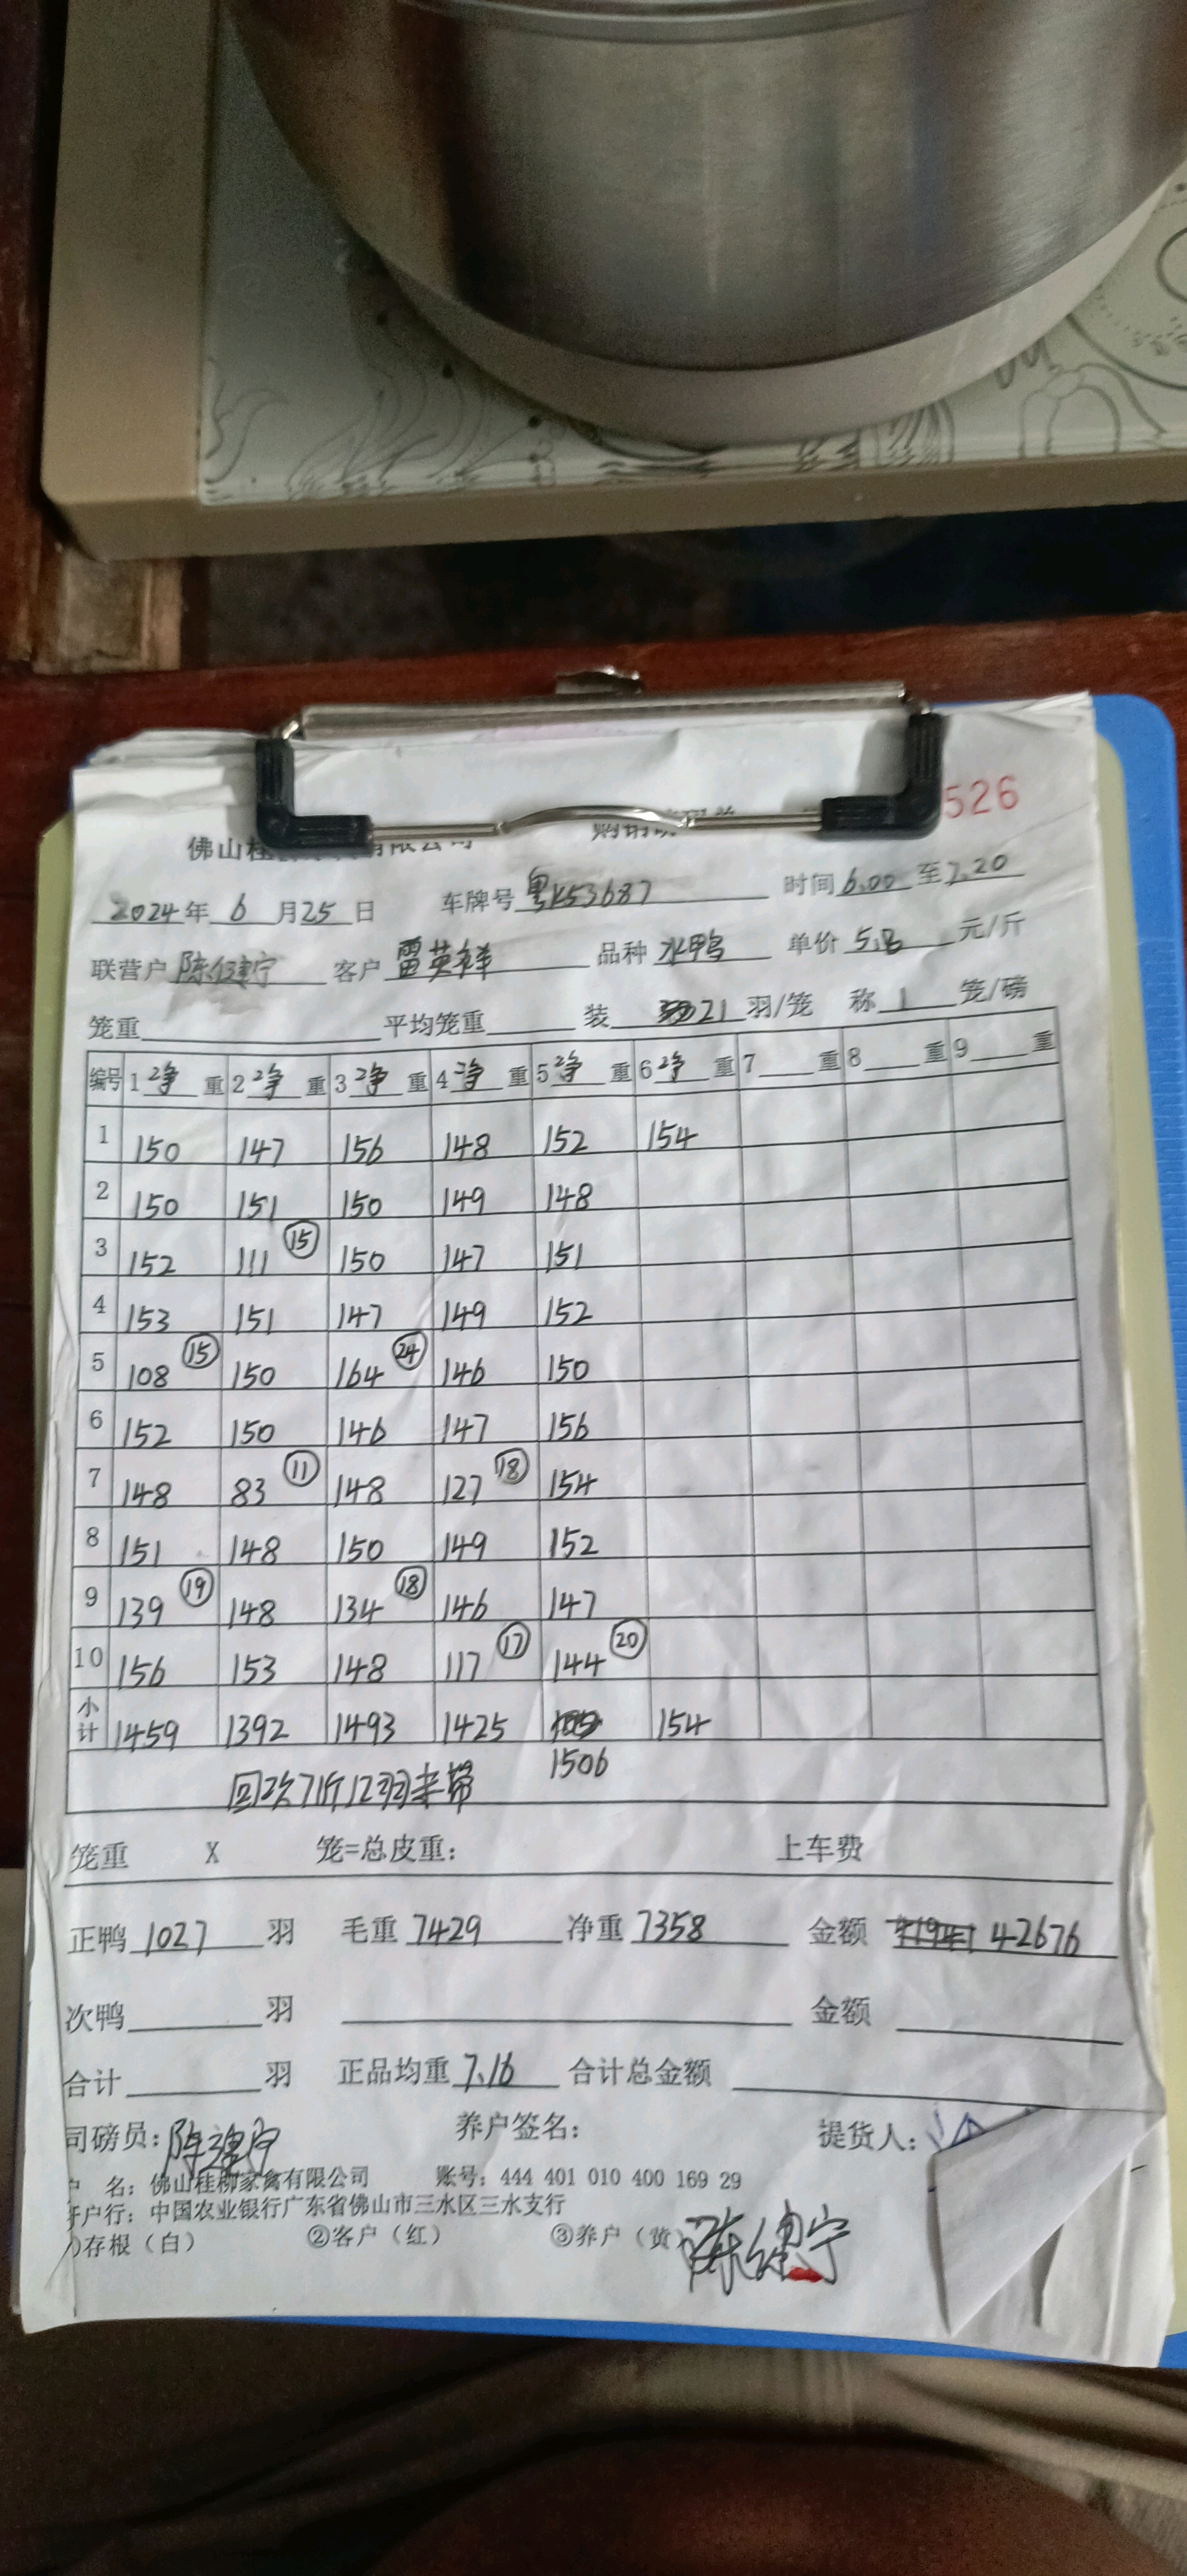 526
佛山桂
2024年 6 月 25 日 车牌号 粤K53687 时间 6.00 至 7.20
联营户 陈健宁 客户 雷英祥 品种 水鸭 单价 5.8 元/斤
笼重 平均笼重 装 21 羽/笼 称 1 笼/磅
编号 1 净 重 2 净 重 3 净 重 4 净 重 5 净 重 6 净 重 7 重 8 重 9 重
1 150 147 156 148 152 154
2 150 151 150 149 148
3 152 111 ⑮ 150 147 151
4 153 151 147 149 152
5 108 ⑮ 150 164 ㉔ 146 150
6 152 150 146 147 156
7 148 83 ⑪ 148 127 ⑱ 154
8 151 148 150 149 152
9 139 ⑲ 148 134 ⑱ 146 147
10 156 153 148 117 ⑰ 144 ⑳
小计 1459 1392 1493 1425 154
1506
回次71斤12羽未带
笼重 X 笼=总皮重: 上车费
正鸭 1027 羽 毛重 7429 净重 7358 金额 42676
次鸭 羽 金额
合计 羽 正品均重 7.16 合计总金额
司磅员: 陈健宁 养户签名: 提货人:
名: 佛山桂柳家禽有限公司 账号: 444 401 010 400 169 29
开户行: 中国农业银行广东省佛山市三水区三水支行
存根(白) ②客户(红) ③养户(黄)
陈健宁